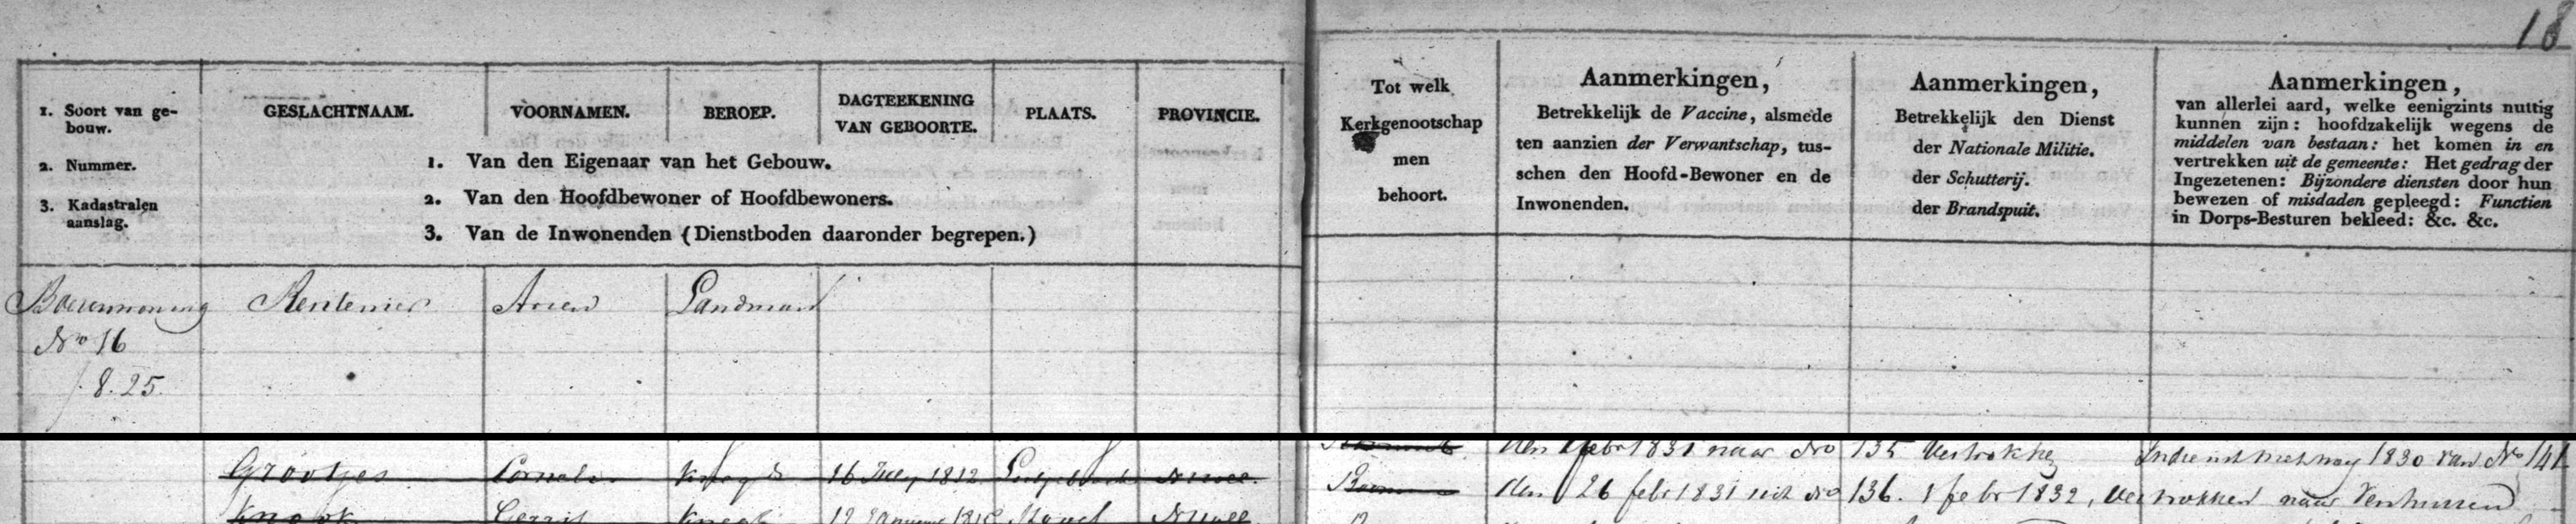 18
1. Soort van ge-
bouw.
2. Nummer.
3. Kadastralen
aanslag.
GESLACHTNAAM.
VOORNAMEN.
BEROEP.
DAGTEEKENING
VAN GEBOORTE.
PLAATS.
PROVINCIE.
1. Van den Eigenaar van het Gebouw.
2. Van den Hoofdbewoner of Hoofdbewoners.
3. Van de Inwonenden (Dienstboden daaronder begrepen.)
Tot welk
Kerkgenootschap
men
behoort.
Aanmerkingen,
Betrekkelijk de Vaccine, alsmede
ten aanzien der Verwantschap, tus-
schen den Hoofd-Bewoner en de
Inwonenden.
Aanmerkingen,
Betrekkelijk den Dienst
der Nationale Militie.
der Schutterij.
der Brandspuit.
Aanmerkingen,
van allerlei aard, welke eenigzints nuttig
kunnen zijn: hoofdzakelijk wegens de
middelen van bestaan: het komen in en
vertrekken uit de gemeente: Het gedrag der
Ingezetenen: Bijzondere diensten door hun
bewezen of misdaden gepleegd: Functien
in Dorps-Besturen bekleed: &c. &c.
Boerenwoning Arien Landman
No 16
8.25
Grootjes Cornelis Knegt 16 July 1812 den 1 febr 1831 naar No 135 Vertrokken 1830 van No 141
Knook Gerrit Knegt den 26 febr 1831 uit No 136. 1 febr 1832, vertrokken naar Venhuisen